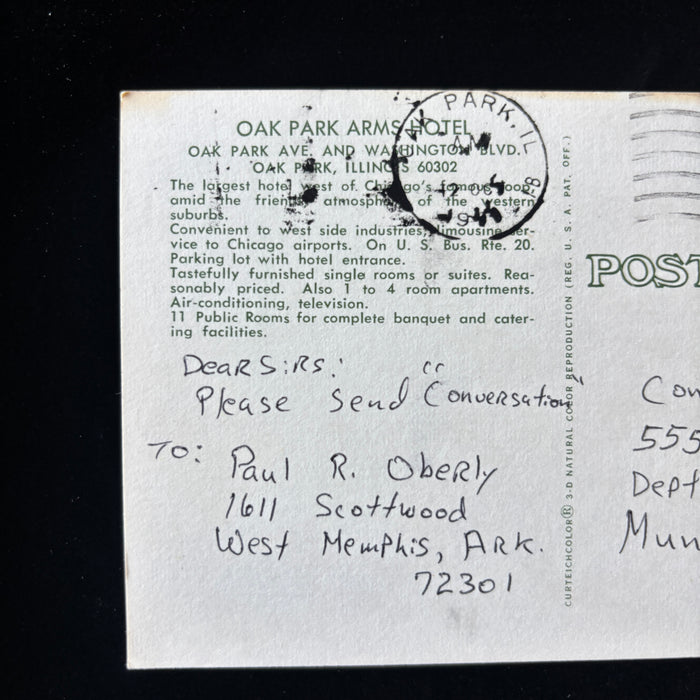 OAK PARK ARMS HOTEL
OAK PARK AVE. AND WASHINGTON BLVD.
OAK PARK, ILLINOIS 60302
The largest hotel west of Chicago's famous loop
amid the friendly atmosphere of the western
suburbs.
Convenient to west side industries, limousine ser-
vice to Chicago airports. On U. S. Bus. Rte. 20.
Parking lot with hotel entrance.
Tastefully furnished single rooms or suites. Rea-
sonably priced. Also 1 to 4 room apartments.
Air-conditioning, television.
11 Public Rooms for complete banquet and cater-
ing facilities.
PARK, IL
AM
Dear Sirs:
Please Send "Conversation"
To:
Paul R. Oberly
1611 Scottwood
West Memphis, Ark.
72301
CURTEICHCOLOR® 3-D NATURAL COLOR REPRODUCTION (REG. U. S. A. PAT. OFF.)
POST
Con
555
Dept
Mun